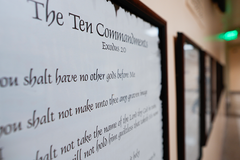 The Ten Commandments
Exodus 20
you shalt have no other gods before Me
ou shalt not make unto thee any graven image
shalt not take the name of the Lord
ll not hold him guiltless that